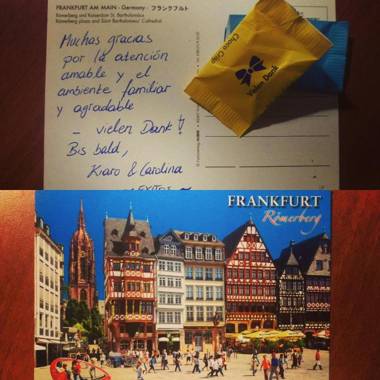 FRANKFURT AM MAIN · Germany · フランクフルト
Römerberg und Kaiserdom St. Bartholomäus
Muchas gracias
por la atención
amable y el
ambiente familiar
y agradable
— vielen Dank!!
Bis bald,
Kiaro & Carolina
Vielen Dank
Choco Clip
FRANKFURT
Römerberg